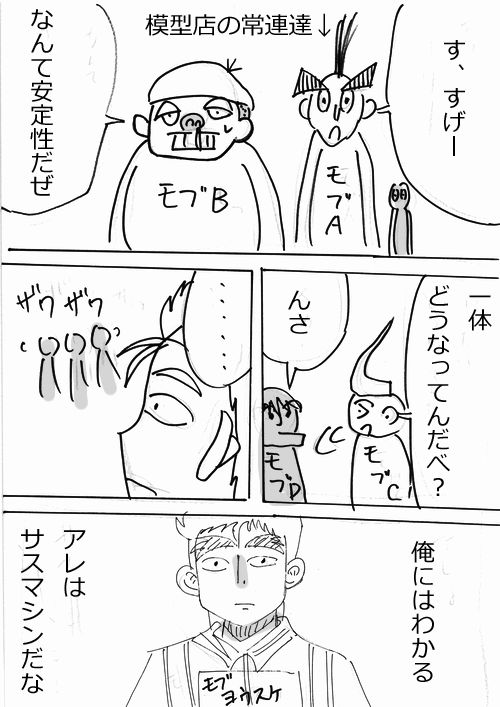 模型店の常連達↓
す、すげー
モブA
なんて安定性だぜ
モブB
一体
どうなってんだべ？
モブC
んさ
モブD
‥‥‥‥
ザワザワ
俺にはわかる
アレは
サスマシンだな
モブ
ヨウスケ